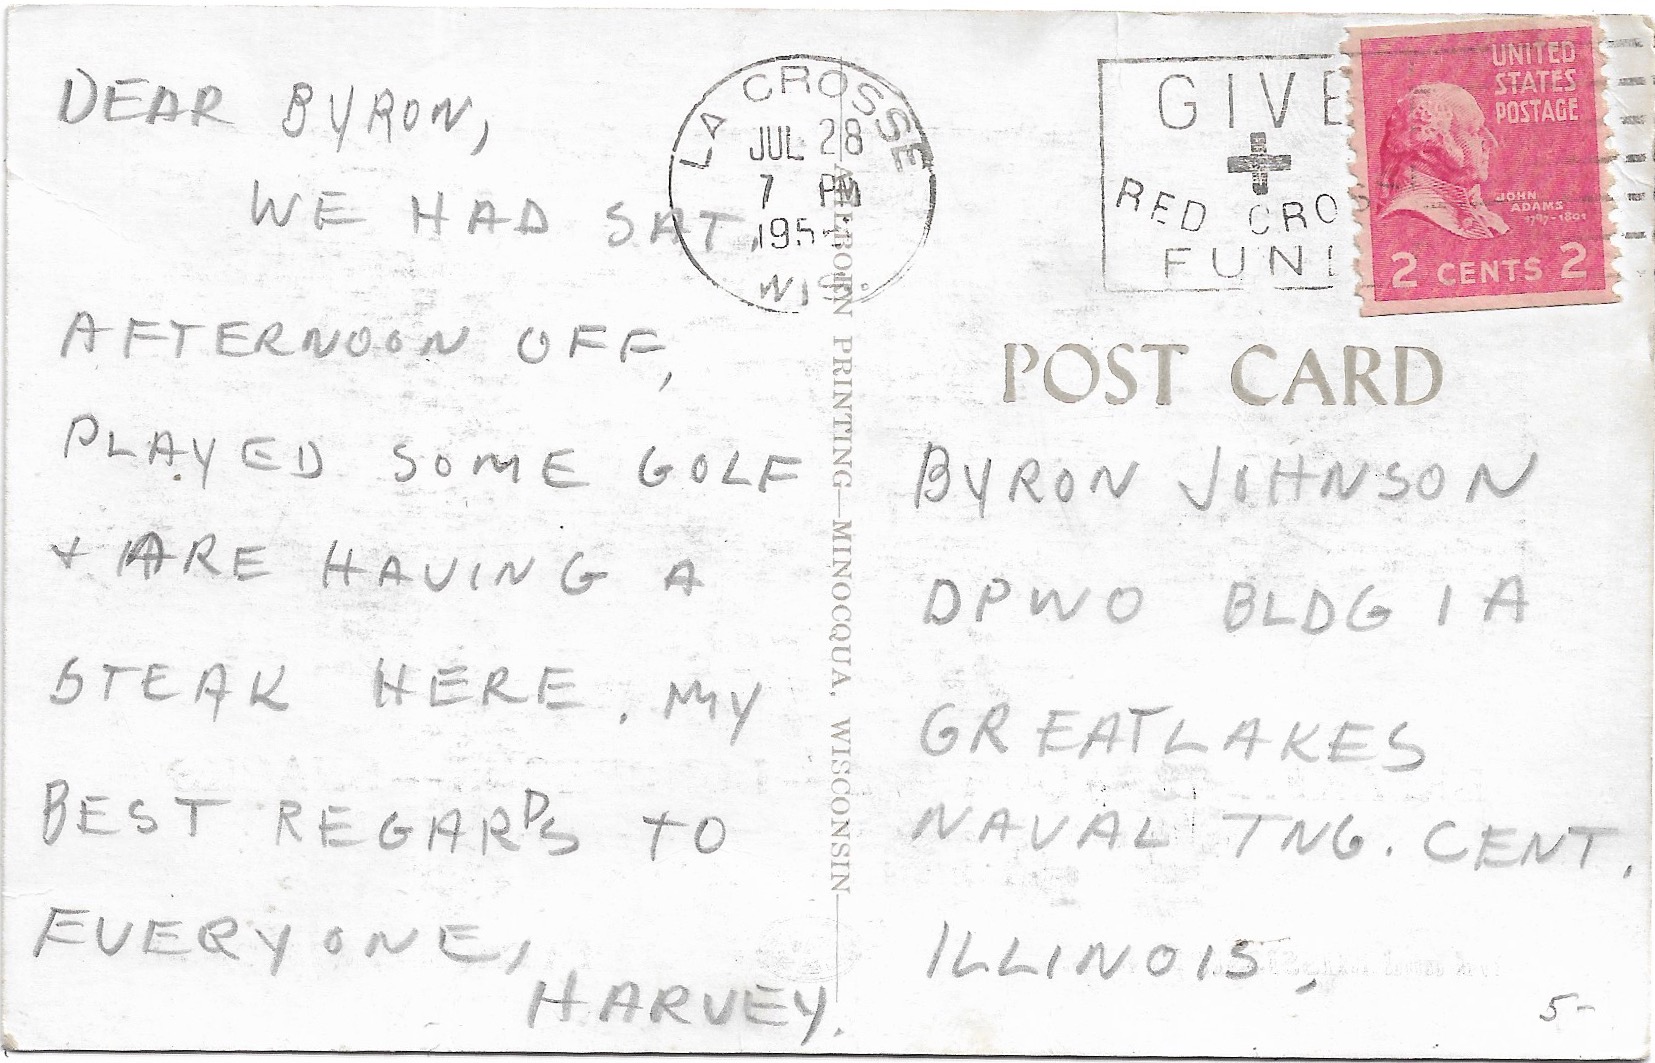 DEAR BYRON,
WE HAD SAT,
AFTERNOON OFF,
PLAYED SOME GOLF
+ ARE HAVING A
STEAK HERE. MY
BEST REGARDS TO
EVERYONE,
HARVEY.
LA CROSSE
JUL 28
7 PM
195
WIS.
PRINTING—MINOCQUA, WISCONSIN
GIVE
RED CROSS
FUND
UNITED
STATES
POSTAGE
JOHN
ADAMS
1797-1801
2 CENTS 2
POST CARD
BYRON JOHNSON
DPWO BLDG 1A
GREAT LAKES
NAVAL TNG. CENT.
ILLINOIS.
5-